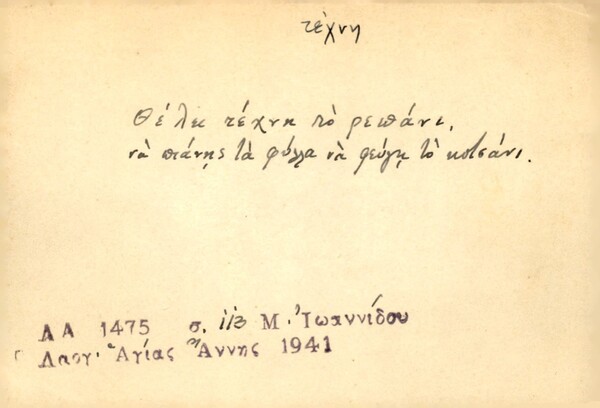 τέχνη
Θέλει τέχνη τὸ ρεπάνι,
νὰ πιάνῃς τὰ φύλλα νὰ φεύγῃ τὸ κοτσάνι.
ΛΑ 1475 σ. 113 Μ. Ἰωαννίδου
Λαογ. Ἁγίας Ἄννης 1941